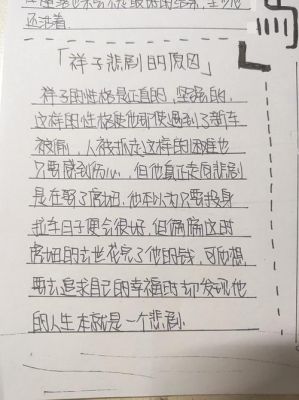 还活着
「祥子悲剧的原因」
祥子的性格是正直的，坚强的，
这样的性格使他即使遇到了新车
被偷，人被抓走这样的困难也
只要感到伤心，但他真正走向悲剧
是在娶了虎妞，他本以为只要投身
拉车日子便会很好，但偏偏这时
虎妞的去世花完了他的钱，可他想
要去追求自己的幸福时却发现他
的人生本就是一个悲剧.